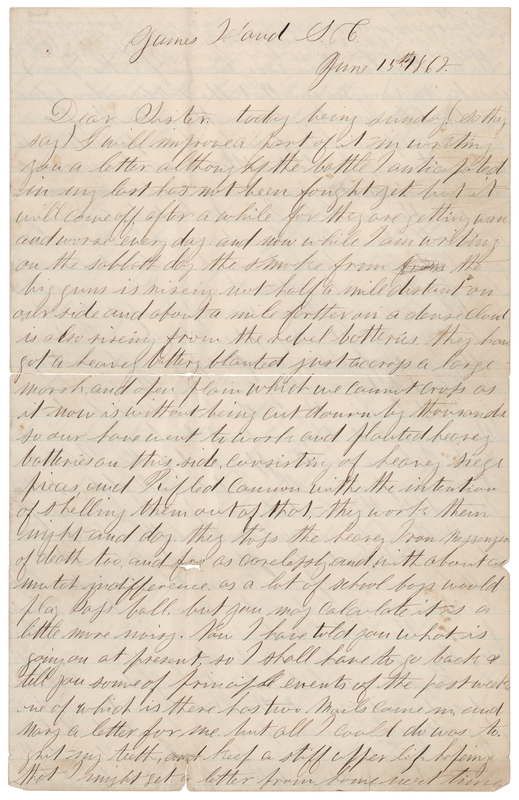 James Iland S.C.
June 15th 1862
Dear Sister today being sunday (so they
say) I will improve part of it in writing
you a letter although the battle I anticipated
in my last has not been fought yet but it
will come off after a while for they are getting worse
and worse every day and now while I am writing
on the sabbath day the smoke from the
big guns is riseing not half a mile distant on
our side and about a mile further on a dense cloud
is also riseing from the rebel batteries they have
got a heavey battery planted just accrost a large
marsh and open plain which we cannot cross as
it now is without being cut down by thousands
so our have went to work and planted heavey
batteries on this side, consisting of heavey siege
pieces, and Rifled Cannon withe the intention
of shelling them out of that they work them
night and day they toss the heavey Iron Messengers
of death too, and as carelessly and with about as
mutch indifference, as a lot of school boys would
play Base ball, but you may calculate it is a
little more noisy. Now I have told you what is
going on at present, so I shall have to go back &
tell you some of principle events of the past week
one of which is there has two Mails came in and
nary a letter for me but all I could do was to
grit my teeth, and keep a stiff upper lip hopeing
that I might get a letter from home next time